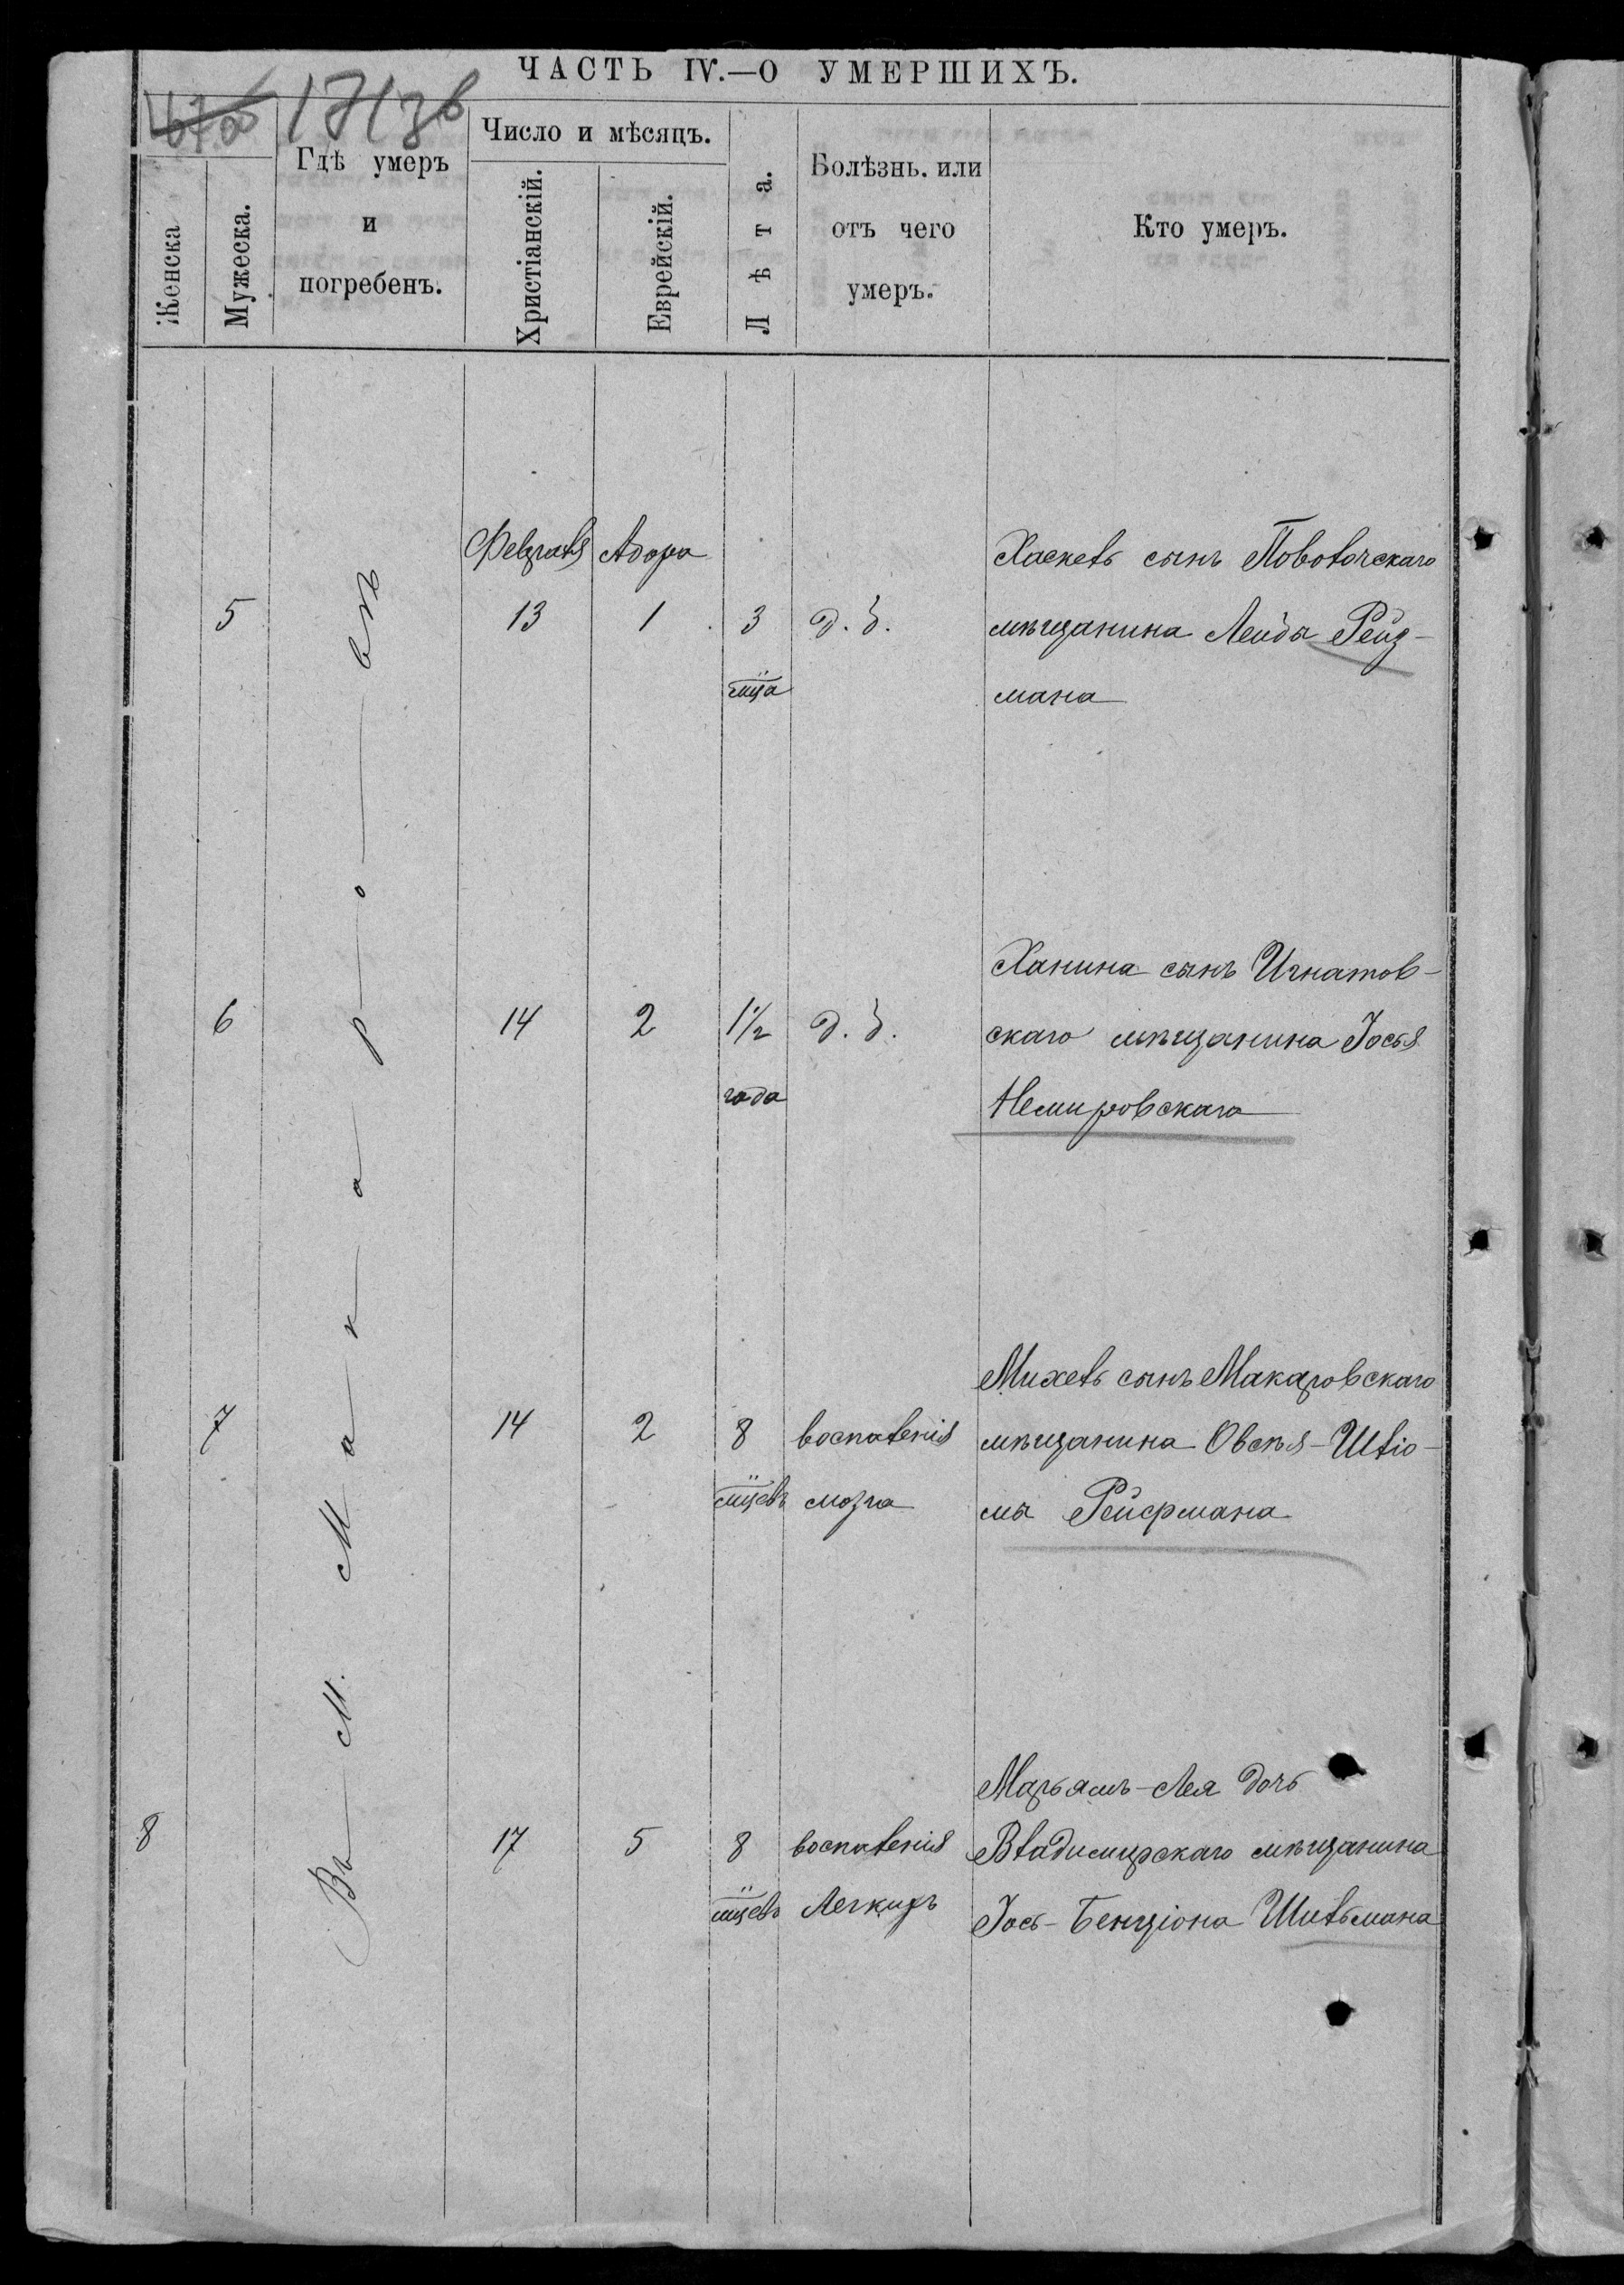 ЧАСТЬ IV.—О УМЕРШИХЪ.
1713б
Женска
Мужеска.
Гдѣ умеръ
и
погребенъ.
Число и мѣсяцъ.
Христіанскій.
Еврейскій.
Лѣта.
Болѣзнь. или
отъ чего
умеръ.
Кто умеръ.
Въ М. Макаровѣ
Февраля Адора
Хаскель сынъ Поволочскаго
5 13 1 3 д. з. мѣщанина Лейба Рейз-
м̃ца мана
Ханина сынъ Игнатов-
6 14 2 1½ д. з. скаго мѣщанина Іося
года Немировскаго
Михель сынъ Макаровскаго
7 14 2 8 воспаленія мѣщанина Овсѣя-Шліо-
м̃цевъ мозга мы Рейфмана
Марьямъ-Лея дочь
8 17 5 8 воспаленія Владимирскаго мѣщанина
м̃цевъ Легкихъ Іось-Бенціона Шильмана